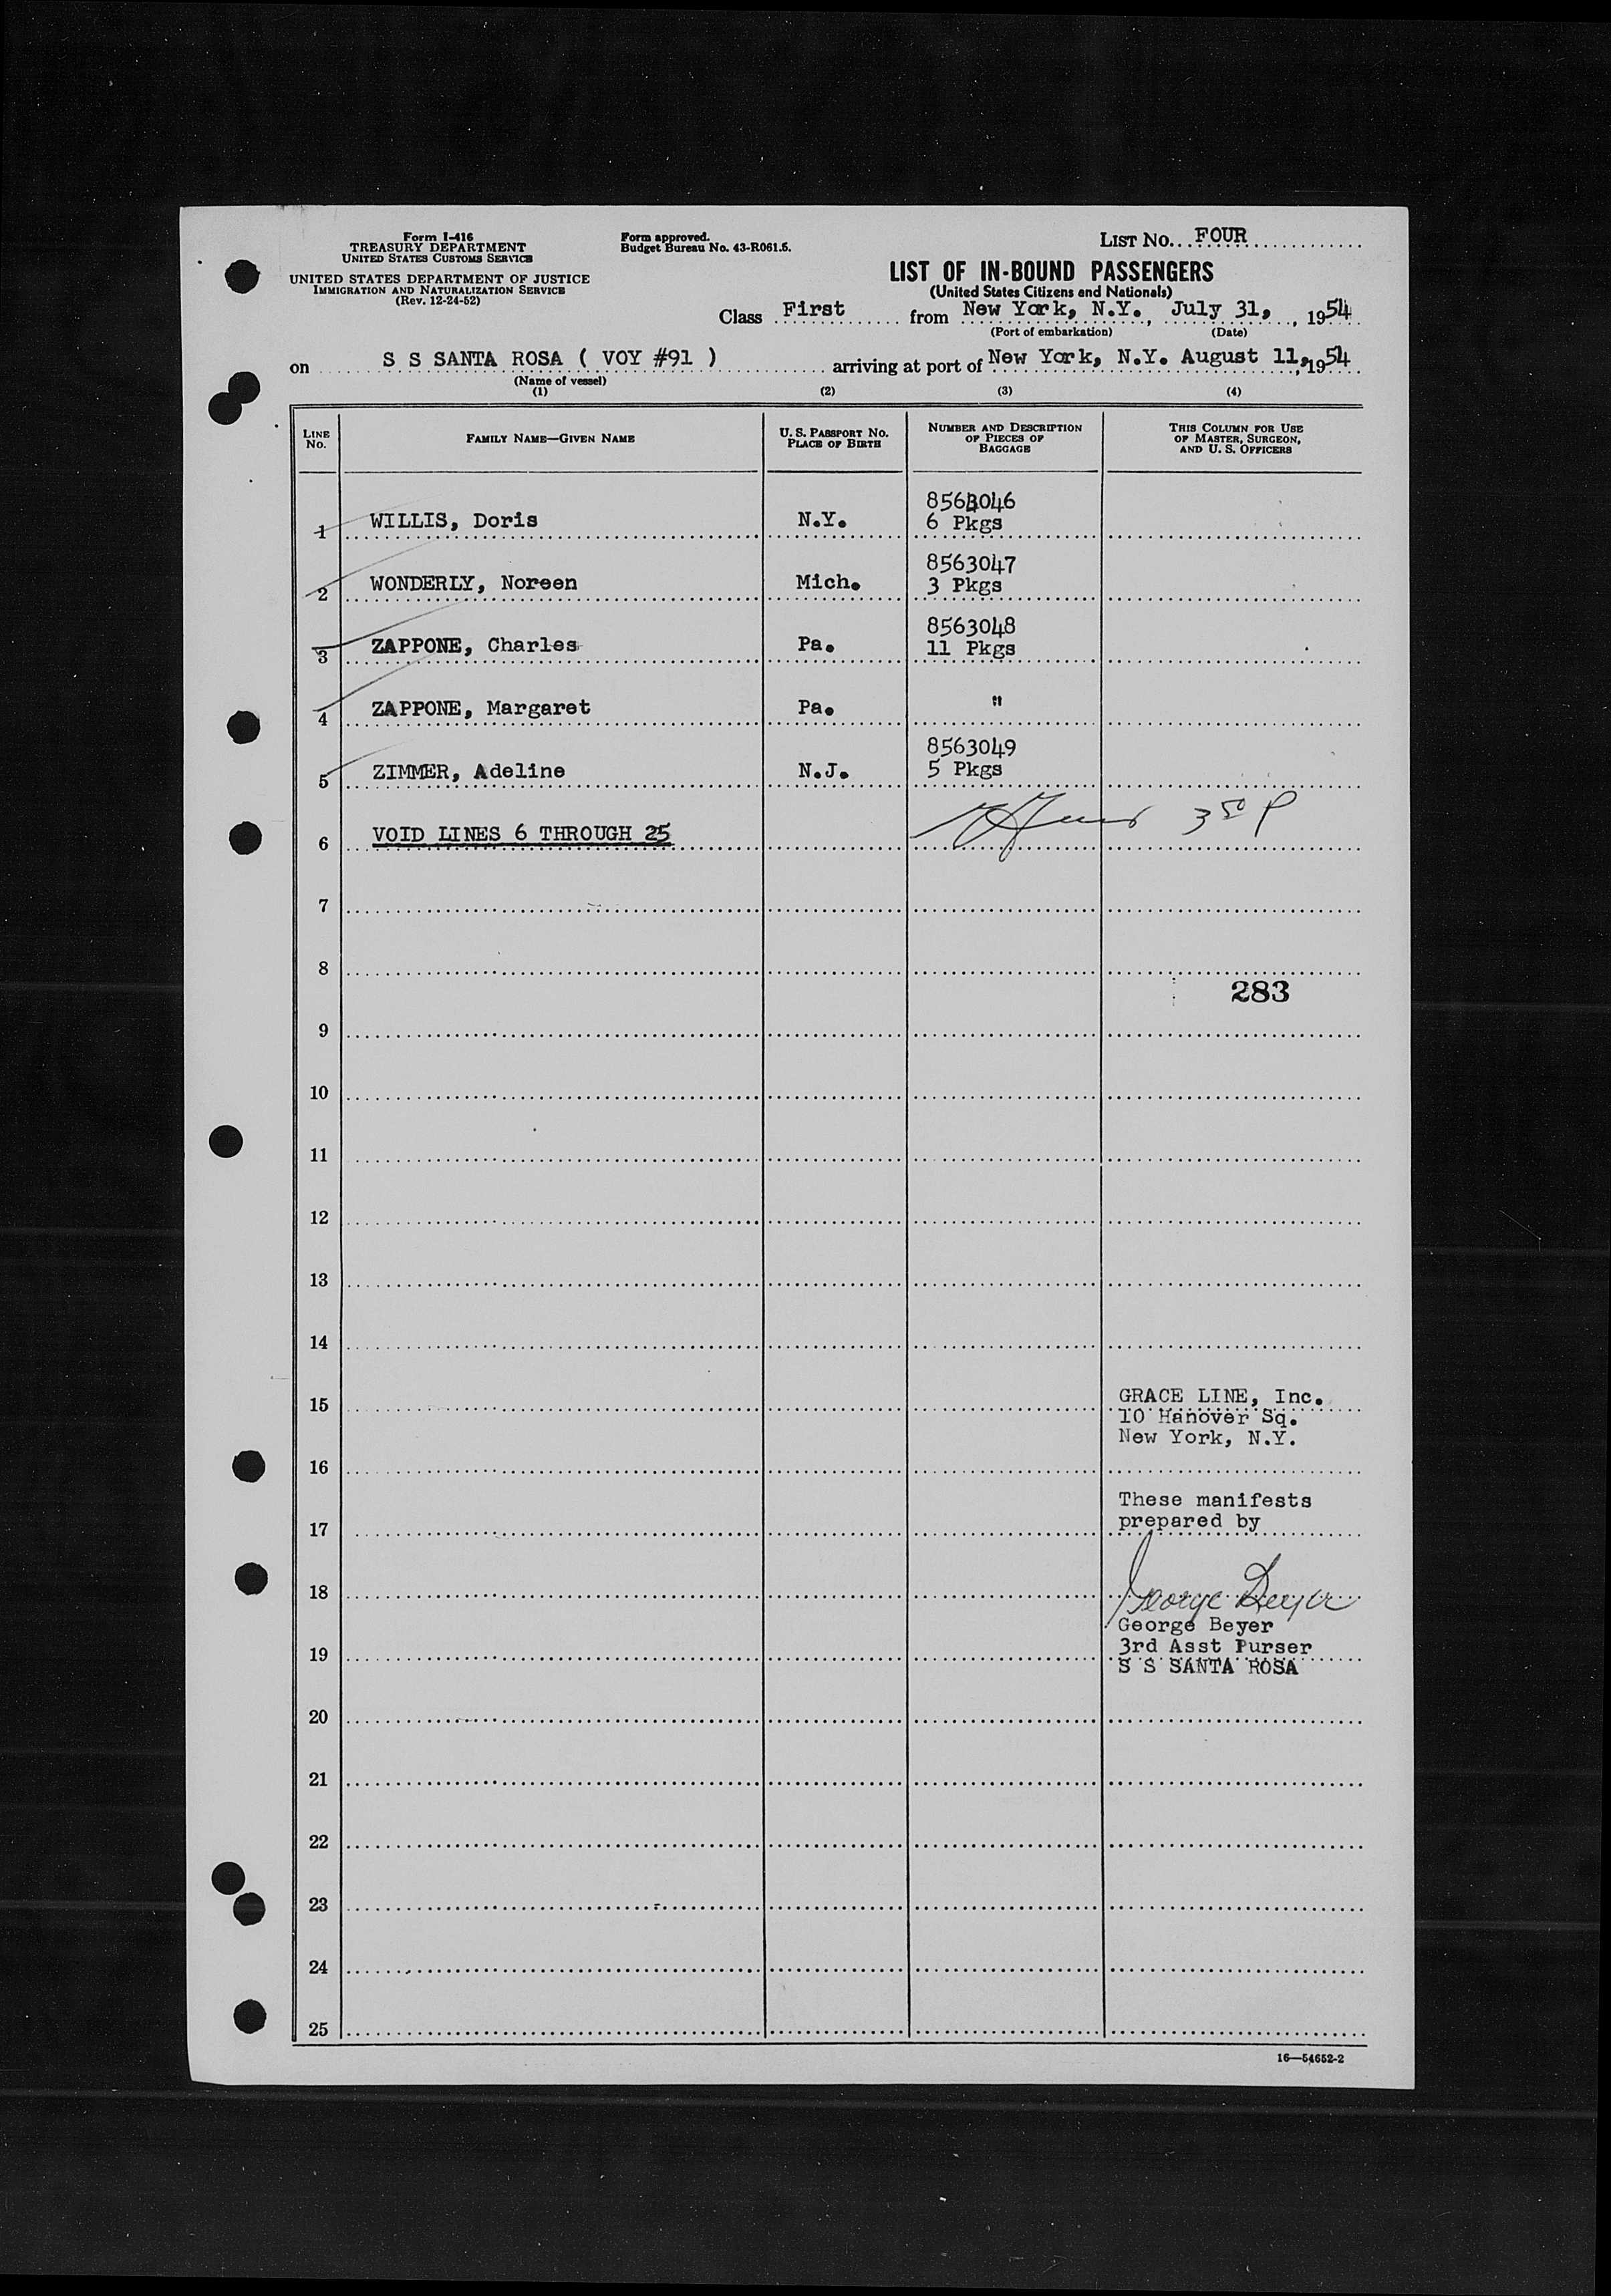 Form I-416
TREASURY DEPARTMENT
UNITED STATES CUSTOMS SERVICE
UNITED STATES DEPARTMENT OF JUSTICE
IMMIGRATION AND NATURALIZATION SERVICE
(Rev. 12-24-52)
Form approved.
Budget Bureau No. 43-R061.5.
LIST No. FOUR
LIST OF IN-BOUND PASSENGERS
(United States Citizens and Nationals)
Class First from New York, N.Y., July 31, 1954
(Port of embarkation) (Date)
on S S SANTA ROSA ( VOY #91 ) arriving at port of New York, N.Y. August 11, 1954
(Name of vessel)
(1) (2) (3) (4)
LINE No. FAMILY NAME—GIVEN NAME U. S. PASSPORT No. PLACE OF BIRTH NUMBER AND DESCRIPTION OF PIECES OF BAGGAGE THIS COLUMN FOR USE OF MASTER, SURGEON, AND U. S. OFFICERS
8563046
1 WILLIS, Doris N.Y. 6 Pkgs
8563047
2 WONDERLY, Noreen Mich. 3 Pkgs
8563048
3 ZAPPONE, Charles Pa. 11 Pkgs
4 ZAPPONE, Margaret Pa. "
8563049
5 ZIMMER, Adeline N.J. 5 Pkgs
6 VOID LINES 6 THROUGH 25 3 50 P
7
8
283
9
10
11
12
13
14
15 GRACE LINE, Inc.
10 Hanover Sq.
New York, N.Y.
16
These manifests
17 prepared by
18 George Beyer
George Beyer
19 3rd Asst Purser
S S SANTA ROSA
20
21
22
23
24
25
16—54652-2